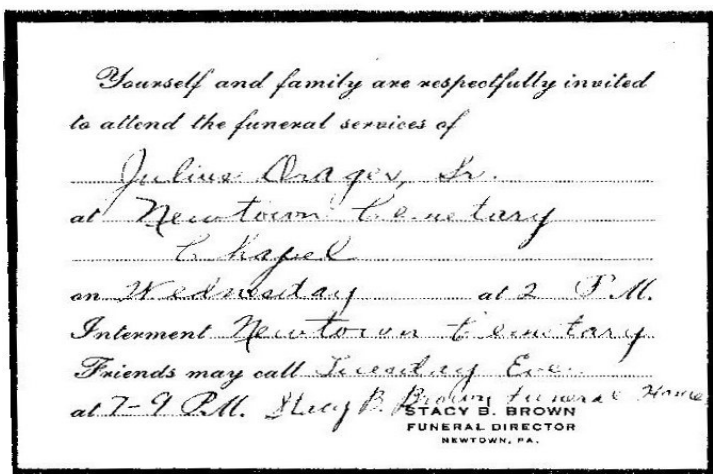 Yourself and family are respectfully invited
to attend the funeral services of
Julius Orager, Sr.
at Newtown Cemetary
Chapel
on Wednesday at 2 P.M.
Interment Newtown Cemetary
Friends may call Tuesday Eve.
at 7-9 P.M. Stacy B. Brown Funeral Home
STACY B. BROWN
FUNERAL DIRECTOR
NEWTOWN, PA.